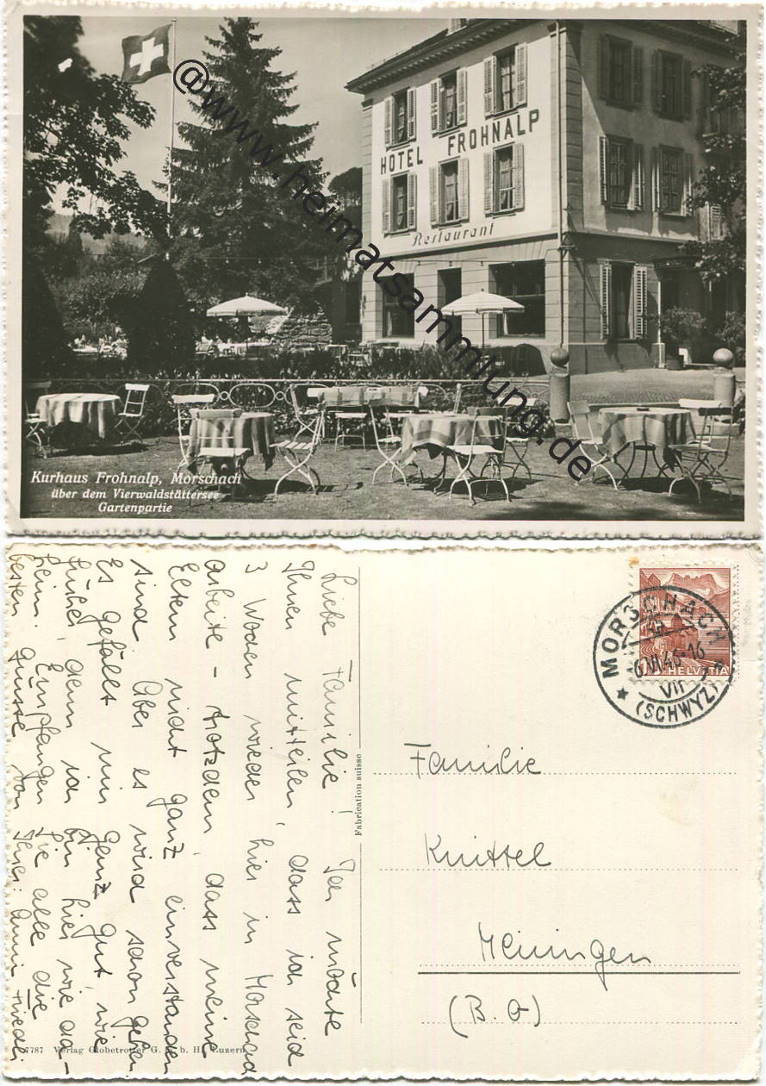 HOTEL FROHNALP
Restaurant
@www.heimatsammlung.de
Kurhaus Frohnalp, Morschach
über dem Vierwaldstättersee
Gartenpartie
Liebe Familie! Ich möchte
Ihnen mitteilen, dass ich seid
3 Wochen wieder hier in Morschach
arbeite - trotzdem, dass meine
Eltern nicht ganz einverstanden
sind. Aber es wird schon gehn.
Es gefällt mir ganz gut, wie
früher, denn ich bin hier wie da-
heim. Empfangen Sie alle die
besten Grüsse von Ihrer:
Fabrication suisse
7787 Verlag Globetrotter G. m. b. H. Luzern
HELVETIA
MORSCHACH
(SCHWYZ)
Familie
Knittel
Meiringen
(B. O)